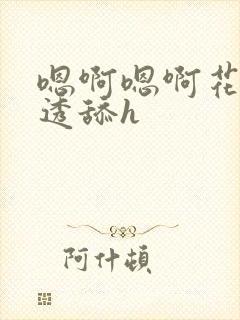 嗯啊嗯啊花
透舔h
阿什顿